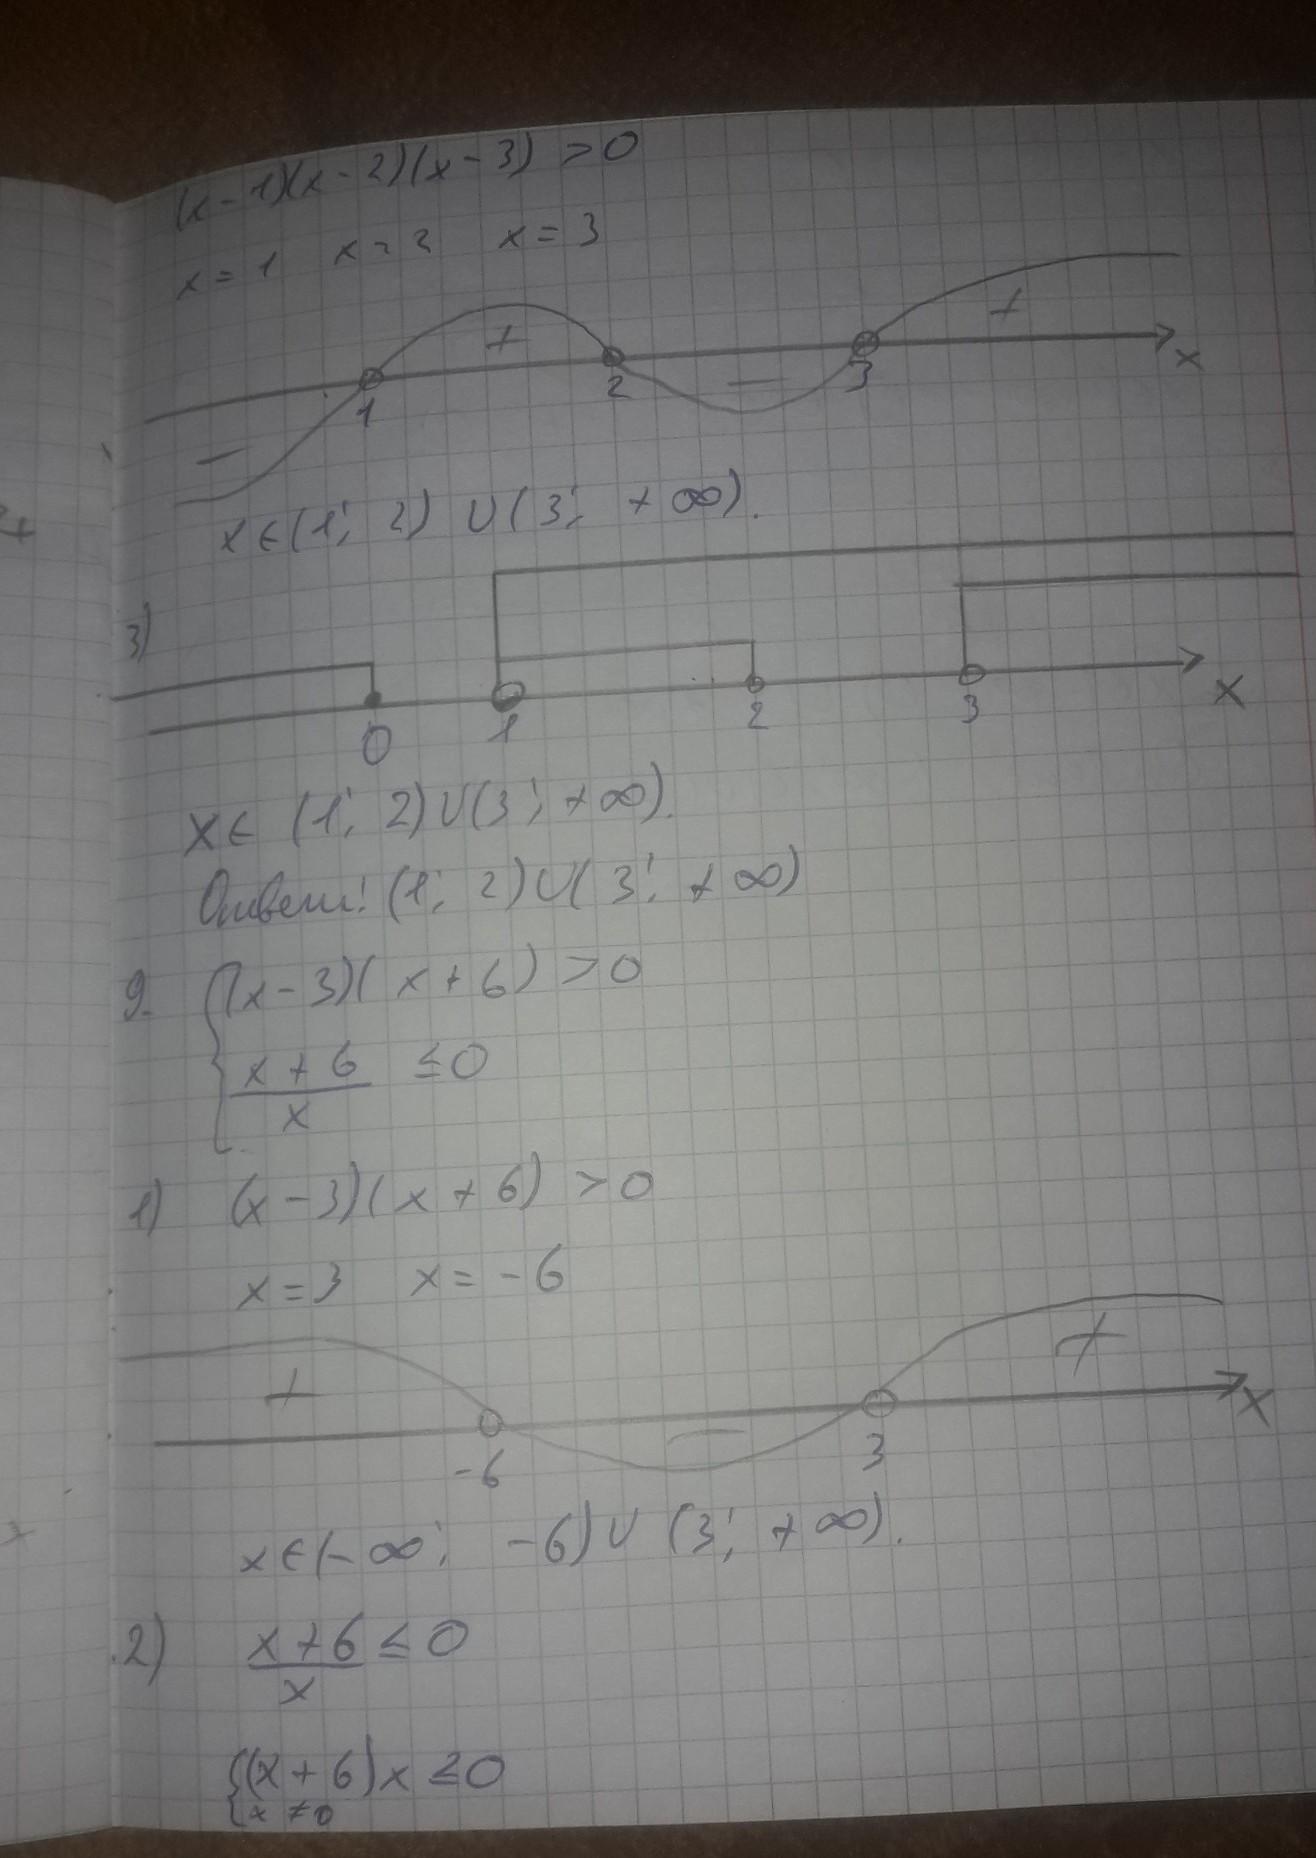 (x-1)(x-2)(x-3) >0
x=1 x=2 x=3
+ +
1 2 — 3 x
—
x∈(1; 2) ∪(3; +∞).
3)
0 1 2 3 x
x∈ (1; 2)∪(3; +∞).
Ответ: (1; 2)∪(3; +∞)
9. {(x-3)(x+6) >0
x+6/x ≤0
1) (x-3)(x+6) >0
x=3 x=-6
+ — + x
-6 3
x∈(-∞; -6)∪ (3; +∞).
2) x+6/x ≤0
{(x+6)x ≤0
x≠0